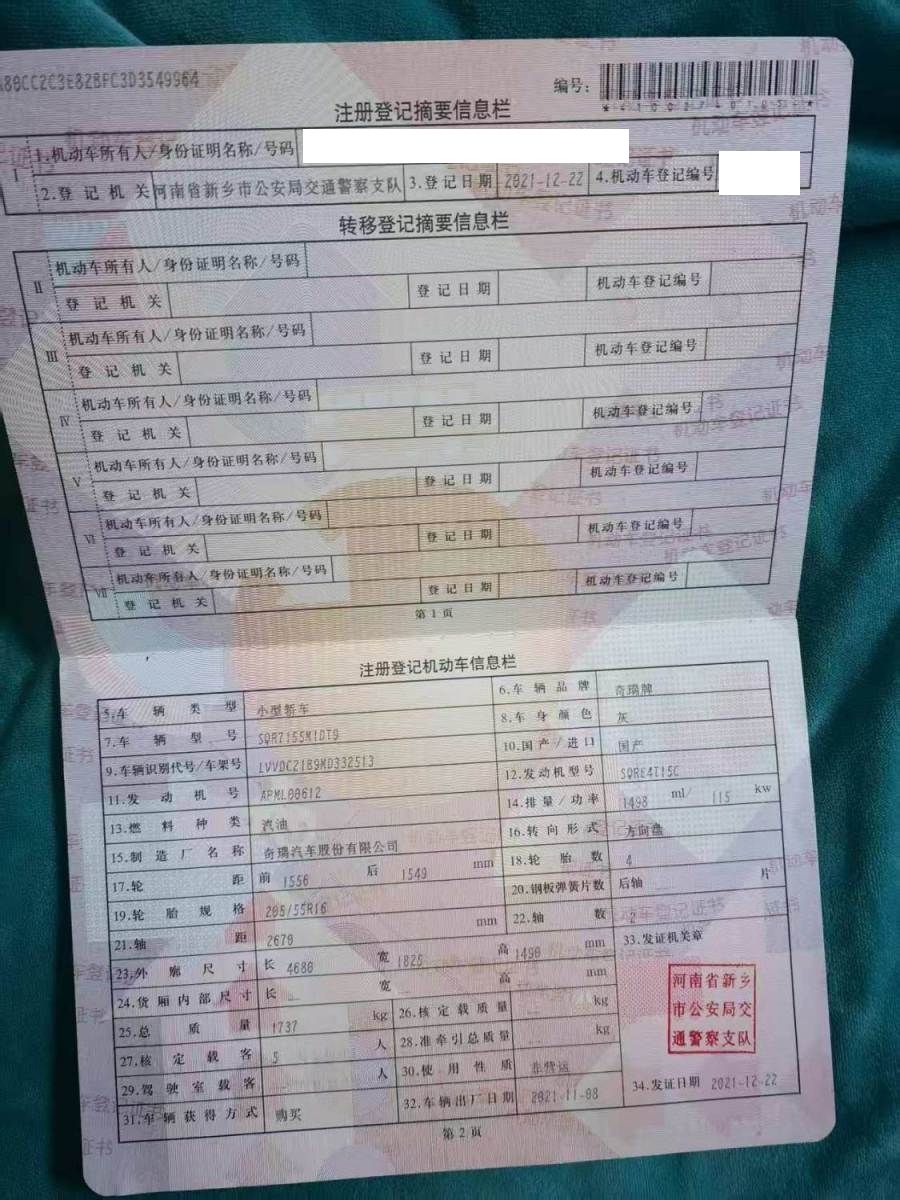 A80CC2C3E82BFC3D3549964
编号:
注册登记摘要信息栏
I 1.机动车所有人/身份证明名称/号码
2.登记机关 河南省新乡市公安局交通警察支队 3.登记日期 2021-12-22 4.机动车登记编号
转移登记摘要信息栏
II 机动车所有人/身份证明名称/号码
登记机关 登记日期 机动车登记编号
III 机动车所有人/身份证明名称/号码
登记机关 登记日期 机动车登记编号
IV 机动车所有人/身份证明名称/号码
登记机关 登记日期 机动车登记编号
V 机动车所有人/身份证明名称/号码
登记机关 登记日期 机动车登记编号
VI 机动车所有人/身份证明名称/号码
登记机关 登记日期 机动车登记编号
VII 机动车所有人/身份证明名称/号码
登记机关 登记日期 机动车登记编号
第1页
注册登记机动车信息栏
5.车辆类型 小型轿车 6.车辆品牌 奇瑞牌
7.车辆型号 SQR7155M1DT9 8.车身颜色 灰
9.车辆识别代号/车架号 LVVDC21B9MD332513 10.国产/进口 国产
11.发动机号 APML00612 12.发动机型号 SQRE4T15C
13.燃料种类 汽油 14.排量/功率 1498 ml/ 115 kw
15.制造厂名称 奇瑞汽车股份有限公司 16.转向形式 方向盘
17.轮距 前 1556 后 1549 mm 18.轮胎数 4
19.轮胎规格 205/55R16 20.钢板弹簧片数 后轴 片
21.轴距 2670 mm 22.轴数 2
23.外廓尺寸 长 4680 宽 1825 高 1490 mm 33.发证机关章
24.货厢内部尺寸 长 宽 高 mm
25.总质量 1737 kg 26.核定载质量 kg
27.核定载客 5 人 28.准牵引总质量 kg
29.驾驶室载客 人 30.使用性质 非营运
31.车辆获得方式 购买 32.车辆出厂日期 2021-11-08 34.发证日期 2021-12-22
河南省新乡
市公安局交
通警察支队
第2页